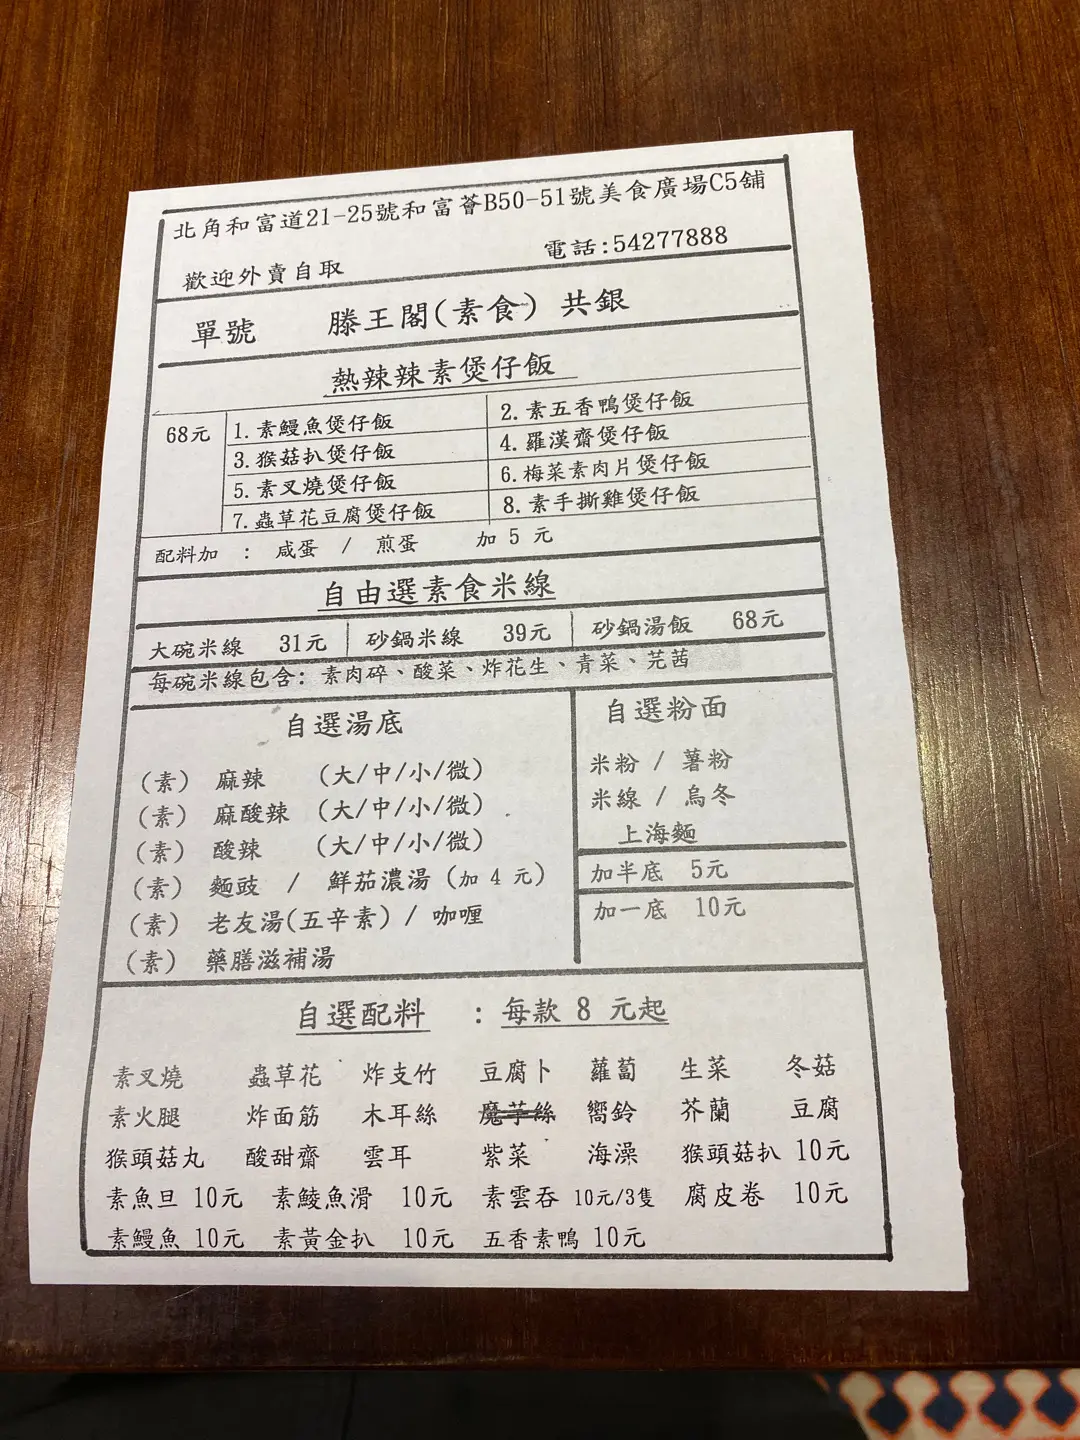 北角和富道21-25號和富薈B50-51號美食廣場C5舖
歡迎外賣自取 電話:54277888
單號 滕王閣(素食) 共銀
熱辣辣素煲仔飯
68元 1.素鰻魚煲仔飯 2.素五香鴨煲仔飯
3.猴菇扒煲仔飯 4.羅漢齋煲仔飯
5.素叉燒煲仔飯 6.梅菜素肉片煲仔飯
7.蟲草花豆腐煲仔飯 8.素手撕雞煲仔飯
配料加 : 咸蛋 / 煎蛋 加 5 元
自由選素食米線
大碗米線 31元 砂鍋米線 39元 砂鍋湯飯 68元
每碗米線包含: 素肉碎、酸菜、炸花生、青菜、芫茜
自選湯底
(素) 麻辣 (大/中/小/微)
(素) 麻酸辣 (大/中/小/微)
(素) 酸辣 (大/中/小/微)
(素) 麵豉 / 鮮茄濃湯 (加 4 元)
(素) 老友湯(五辛素) / 咖喱
(素) 藥膳滋補湯
自選粉面
米粉 / 薯粉
米線 / 烏冬
上海麵
加半底 5元
加一底 10元
自選配料 : 每款 8 元起
素叉燒 蟲草花 炸支竹 豆腐卜 蘿蔔 生菜 冬菇
素火腿 炸面筋 木耳絲 魔芋絲 嚮鈴 芥蘭 豆腐
猴頭菇丸 酸甜齋 雲耳 紫菜 海澡 猴頭菇扒 10元
素魚旦 10元 素鯪魚滑 10元 素雲吞 10元/3隻 腐皮卷 10元
素鰻魚 10元 素黃金扒 10元 五香素鴨 10元